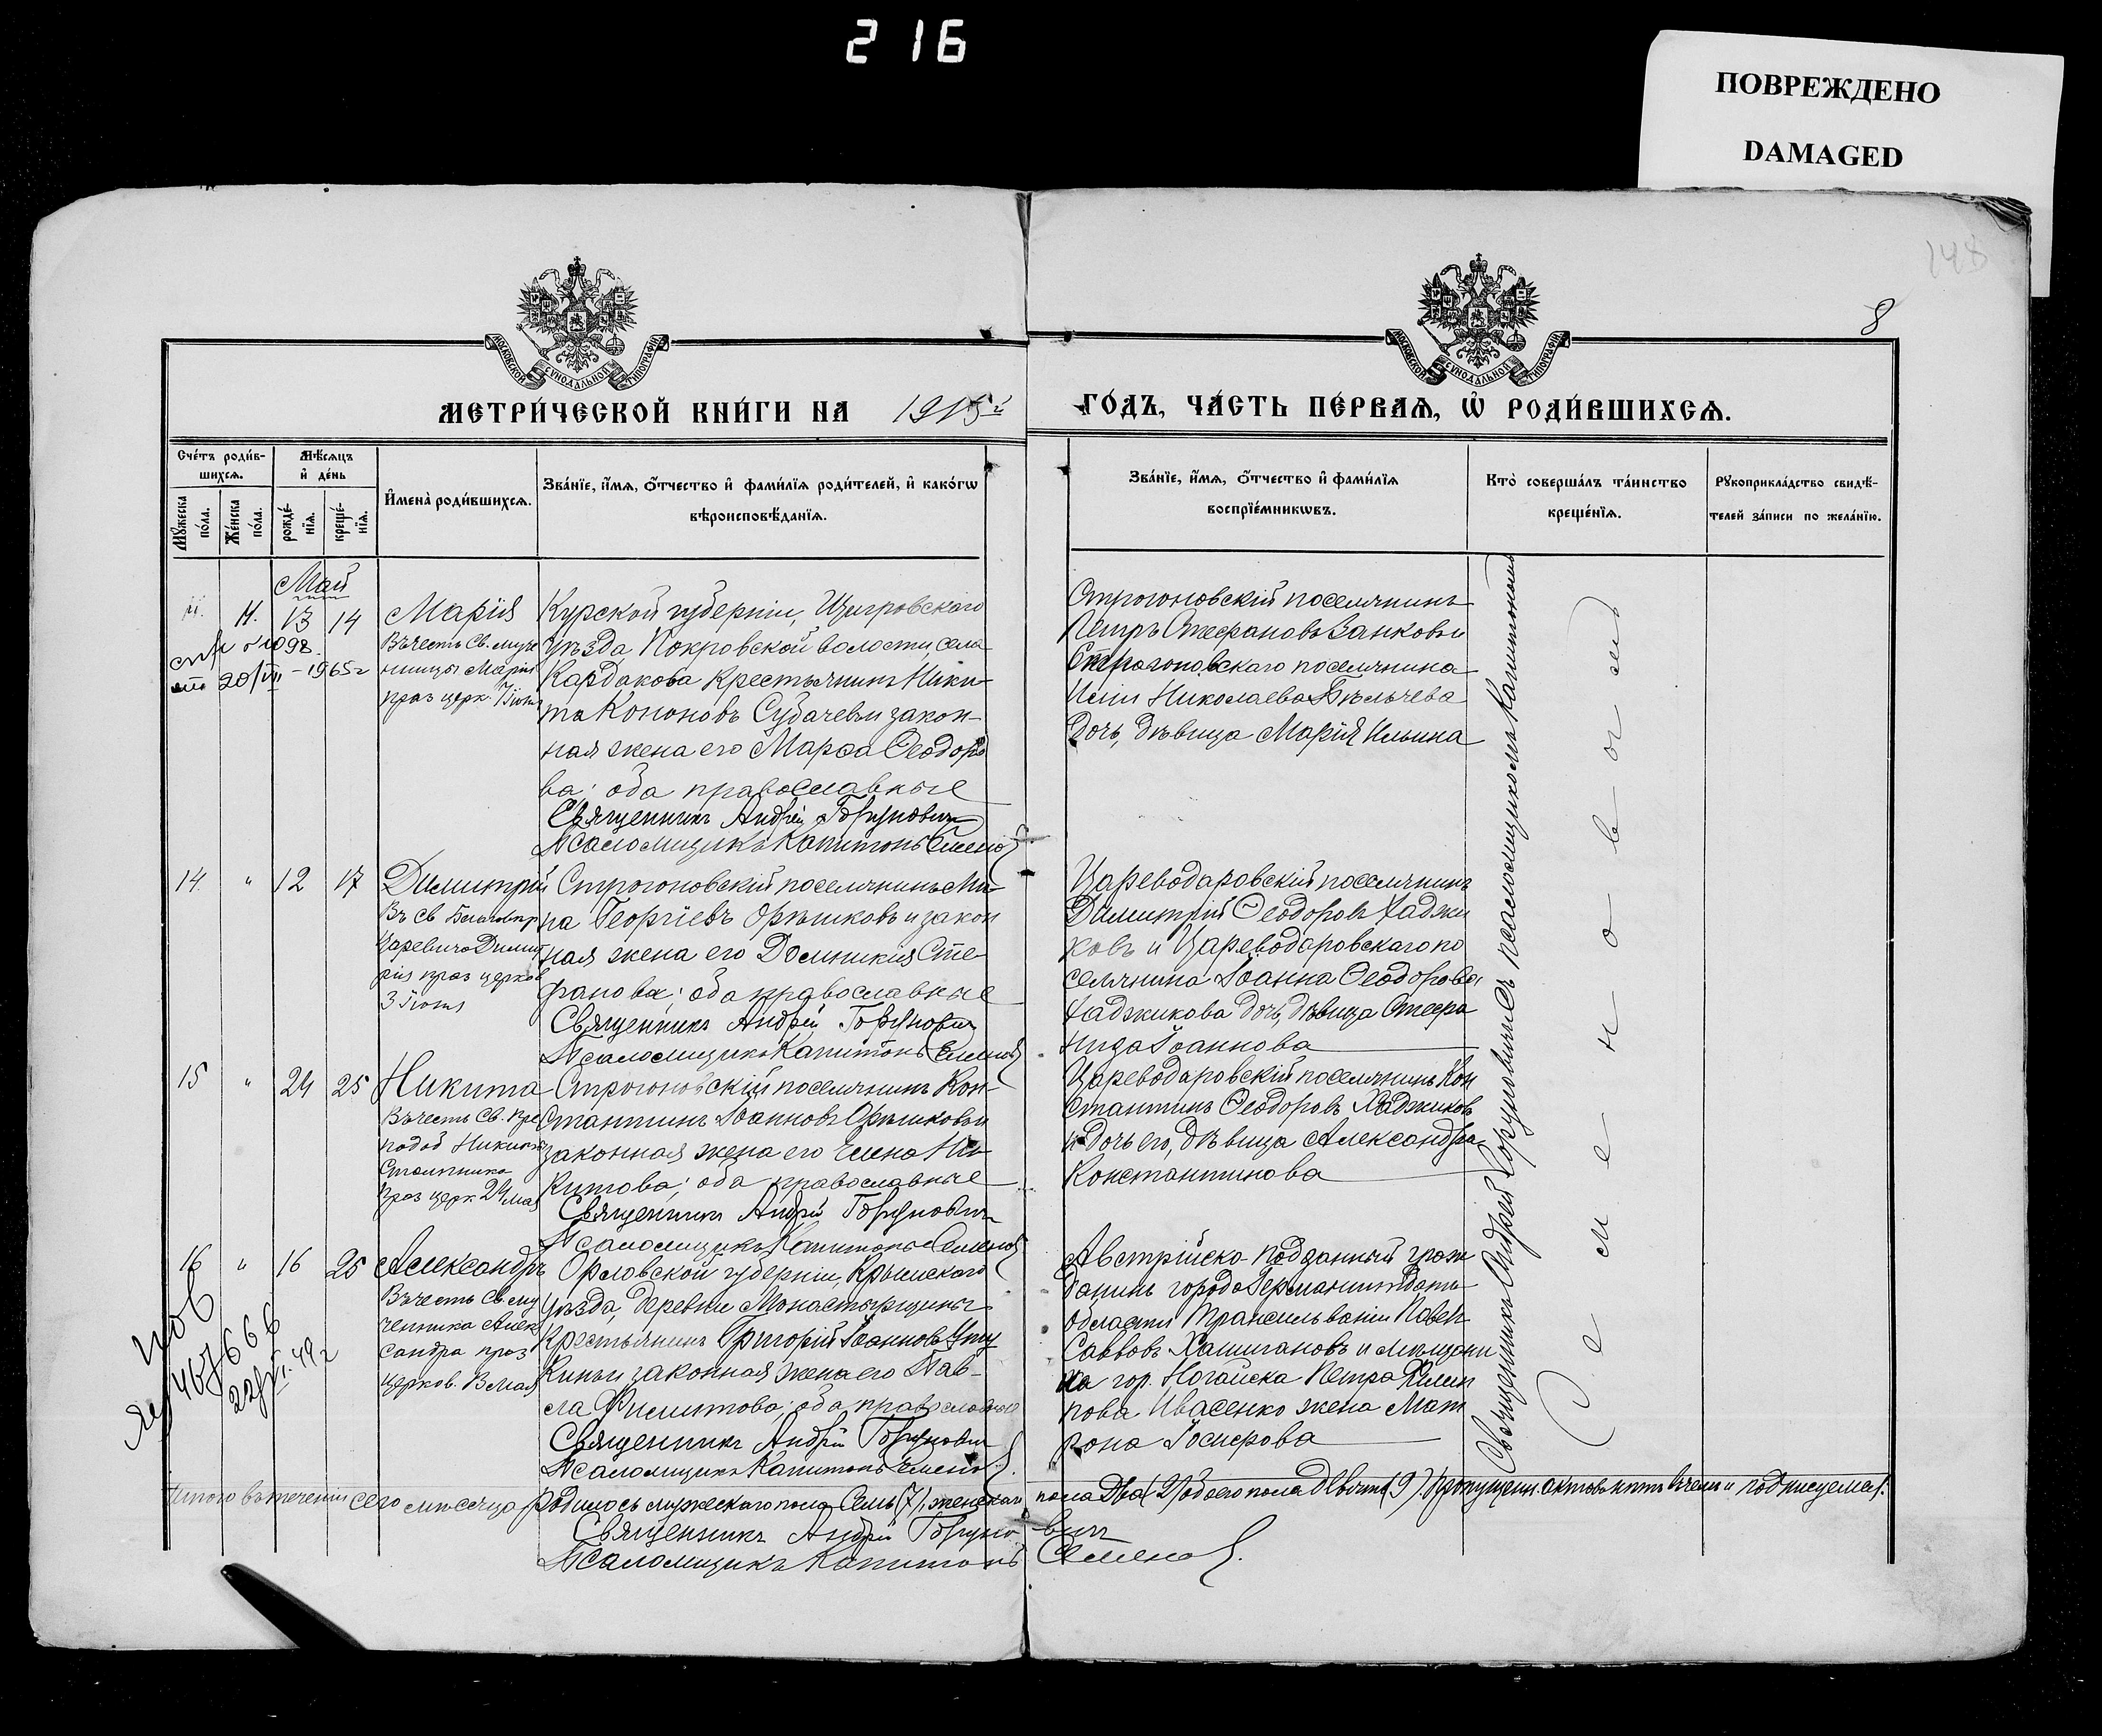 216
ПОВРЕЖДЕНО
DAMAGED
148
8
МОСКОВСКОЙ СѴНОДАЛЬНОЙ ТИПОГРАФІИ
МОСКОВСКОЙ СѴНОДАЛЬНОЙ ТИПОГРАФІИ
МЕТРИ́ЧЕСКОЙ КНИ́ГИ НА 1915й
ГО́ДЪ, ЧА́СТЬ ПЕ́РВАЯ, Ѡ҆ РОДИ́ВШИХСЯ.
Сче́тъ роди́в-
шихся.
Мѣ́сяцъ
и҆ де́нь
Мꙋ́жеска по́ла.
Же́нска по́ла.
рожде́-
нїя.
креще́-
нїя.
И҆мена̀ роди́вшихся.
Зва́нїе, и҆́мя, ѻ҆́тчество и҆ фами́лїя роди́телей, и҆ како́гѡ
вѣроисповѣ́данїя.
Зва́нїе, и҆́мя, ѻ҆́тчество и҆ фами́лїя
воспрїе́мникѡвъ.
Кто̀ соверша́лъ та́инство
креще́нїя.
Рꙋкоприкла́дство свидѣ́-
телей за́писи по жела́нїю.
Май
4. 13 14
Марія
Въ честь Св. муче
ницы Маріи
праз церк. 7 Іюня
20/VII - 1965 г
Курской губерніи, Щигровскаго
уѣзда Покровской волости, села
Кардакова крестьянинъ Ники-
та Кононовъ Субачевъ и закон-
ная жена его Марѳа Ѳеодоро
ва; оба православные
Священникъ Андрей Горуновичъ
Псаломщикъ Капитонъ Семенов
Строгоновскій поселянинъ
Петръ Стефановъ Занковъ и
Строгоновскаго поселянина
Иліи Николаева Бѣльчева
дочь, дѣвица Марія Ильина
14 " 12 17
Димитрій
Въ св Благовѣр
Царевича Димит
рія праз церков
3 Іюня
Строгоновскій поселянинъ Ми-
на Георгіевъ Орѣшковъ и закон
ная жена его Домникія Сте-
фанова; оба православные
Священникъ Андрей Горуновичъ
Псаломщикъ Капитонъ Семенов
Цареводаровскій поселянинъ
Димитрій Ѳеодоровъ Хаджи
ковъ и Цареводаровскаго по
селянина Іоанна Ѳеодорова
Хаджикова дочь, дѣвица Стефа
нида Іоаннова
15 " 24 25
Никита
Въ честь Св. Пре
подоб Никиты
Столпника
Праз церк 24 мая
Строгоновскій поселянинъ Кон-
стантинъ Іоанновъ Орѣшковъ и
законная жена его Елена Ни-
китова; оба православные
Священникъ Андрей Горуновичъ
Псаломщикъ Капитонъ Семенов
Цареводаровскій поселянинъ Кон
стантинъ Ѳеодоровъ Хаджиковъ
и дочь его, дѣвица Александра
Константинова
16 " 16 25
Александръ
Въ честь Св. му
ченника Алек
сандра праз
церков. 13 мая
467666
Орловской губерніи, Крымскаго
уѣзда, деревни Монастырщины
Крестьянинъ Григорій Іоанновъ
и законная жена его Пав-
ла Филиппова; оба православные
Священникъ Андрей Горуновичъ
Псаломщикъ Капитонъ Семенов
Австрійско-подданный граж
данинъ города Германштадтъ
области Трансильваніи Павелъ
Савовъ Хашигановъ и мѣщани
на гор. Ногайска Петра Филип
пова Ивасенко жена Мат
рона Іосифова
Священникъ Андрей Горуновичъ съ псаломщикомъ Капитономъ
Семеновогмъ
Итого въ теченіи сего мѣсяца родилось мужескаго пола Семь (7), женскаго пола Два (2) обоего пола Девять (9). Пропущен. актовъ нѣтъ въ чемъ и подписуемся.
Священникъ Андрей Горунович
Псаломщикъ Капитонъ Семенов.